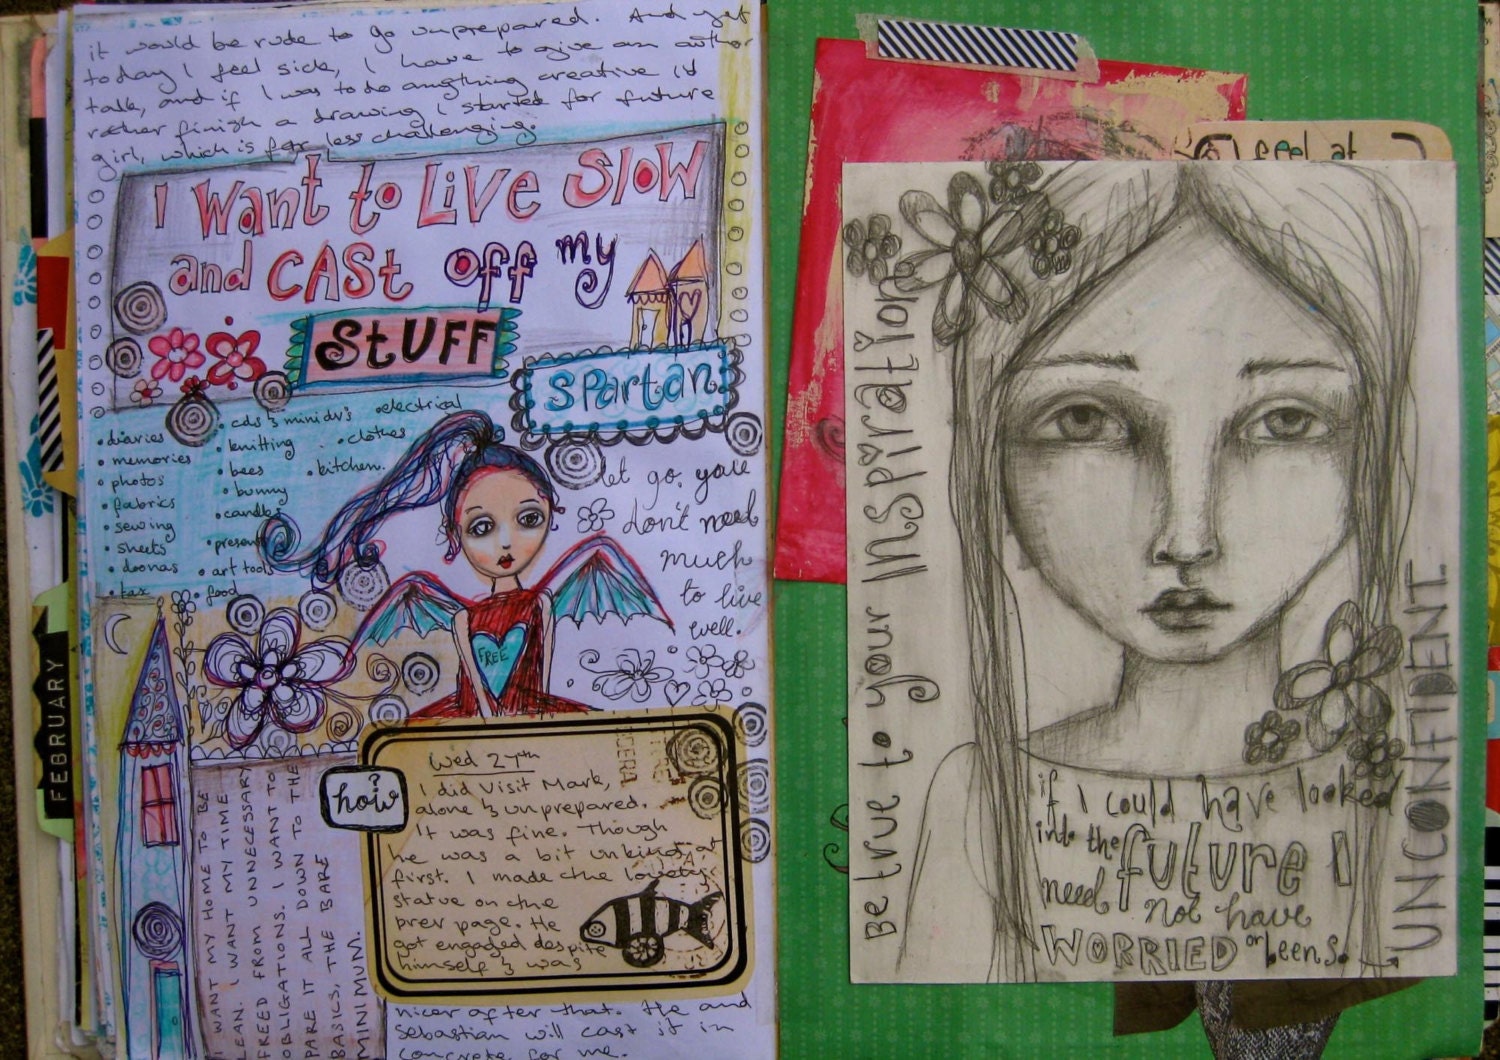 it would be rude to go unprepared. And yet
today I feel sick, I have to give an author
talk, and if I was to do anything creative I'd
rather finish a drawing I started for future
girl, which is far less challenging.
I want to LiVE SlOW
and CASt off my
StUFF
spartan
• diaries
• memories
• photos
• fabrics
• sewing
• sheets
• doonas
• tax
• cds & minidv's
• knitting
• bees
• bunny
• candles
• present
• art tools
• food
• electrical
• clothes
• kitchen.
let go, you
don't need
much
to live
well.
FREE
FEBRUARY
I WANT MY HOME TO BE
LEAN. I WANT MY TIME
FREED FROM UNNECESSARY
OBLIGATIONS. I WANT TO
PARE IT ALL DOWN TO THE
BASICS, THE BARE
MINIMUM.
how?
Wed 27th
I did visit Mark,
alone & unprepared.
It was fine. Though
he was a bit unkind at
first. I made the
statue on the
prev page. He
got engaged despite
himself & was
nicer after that. He and
Sebastian will cast it in
concrete for me.
I feel at
Be true to your INSPiRATiON
if I could have looked
into the future I
need not have
WORRIED or beens.
UNCONFIDENT